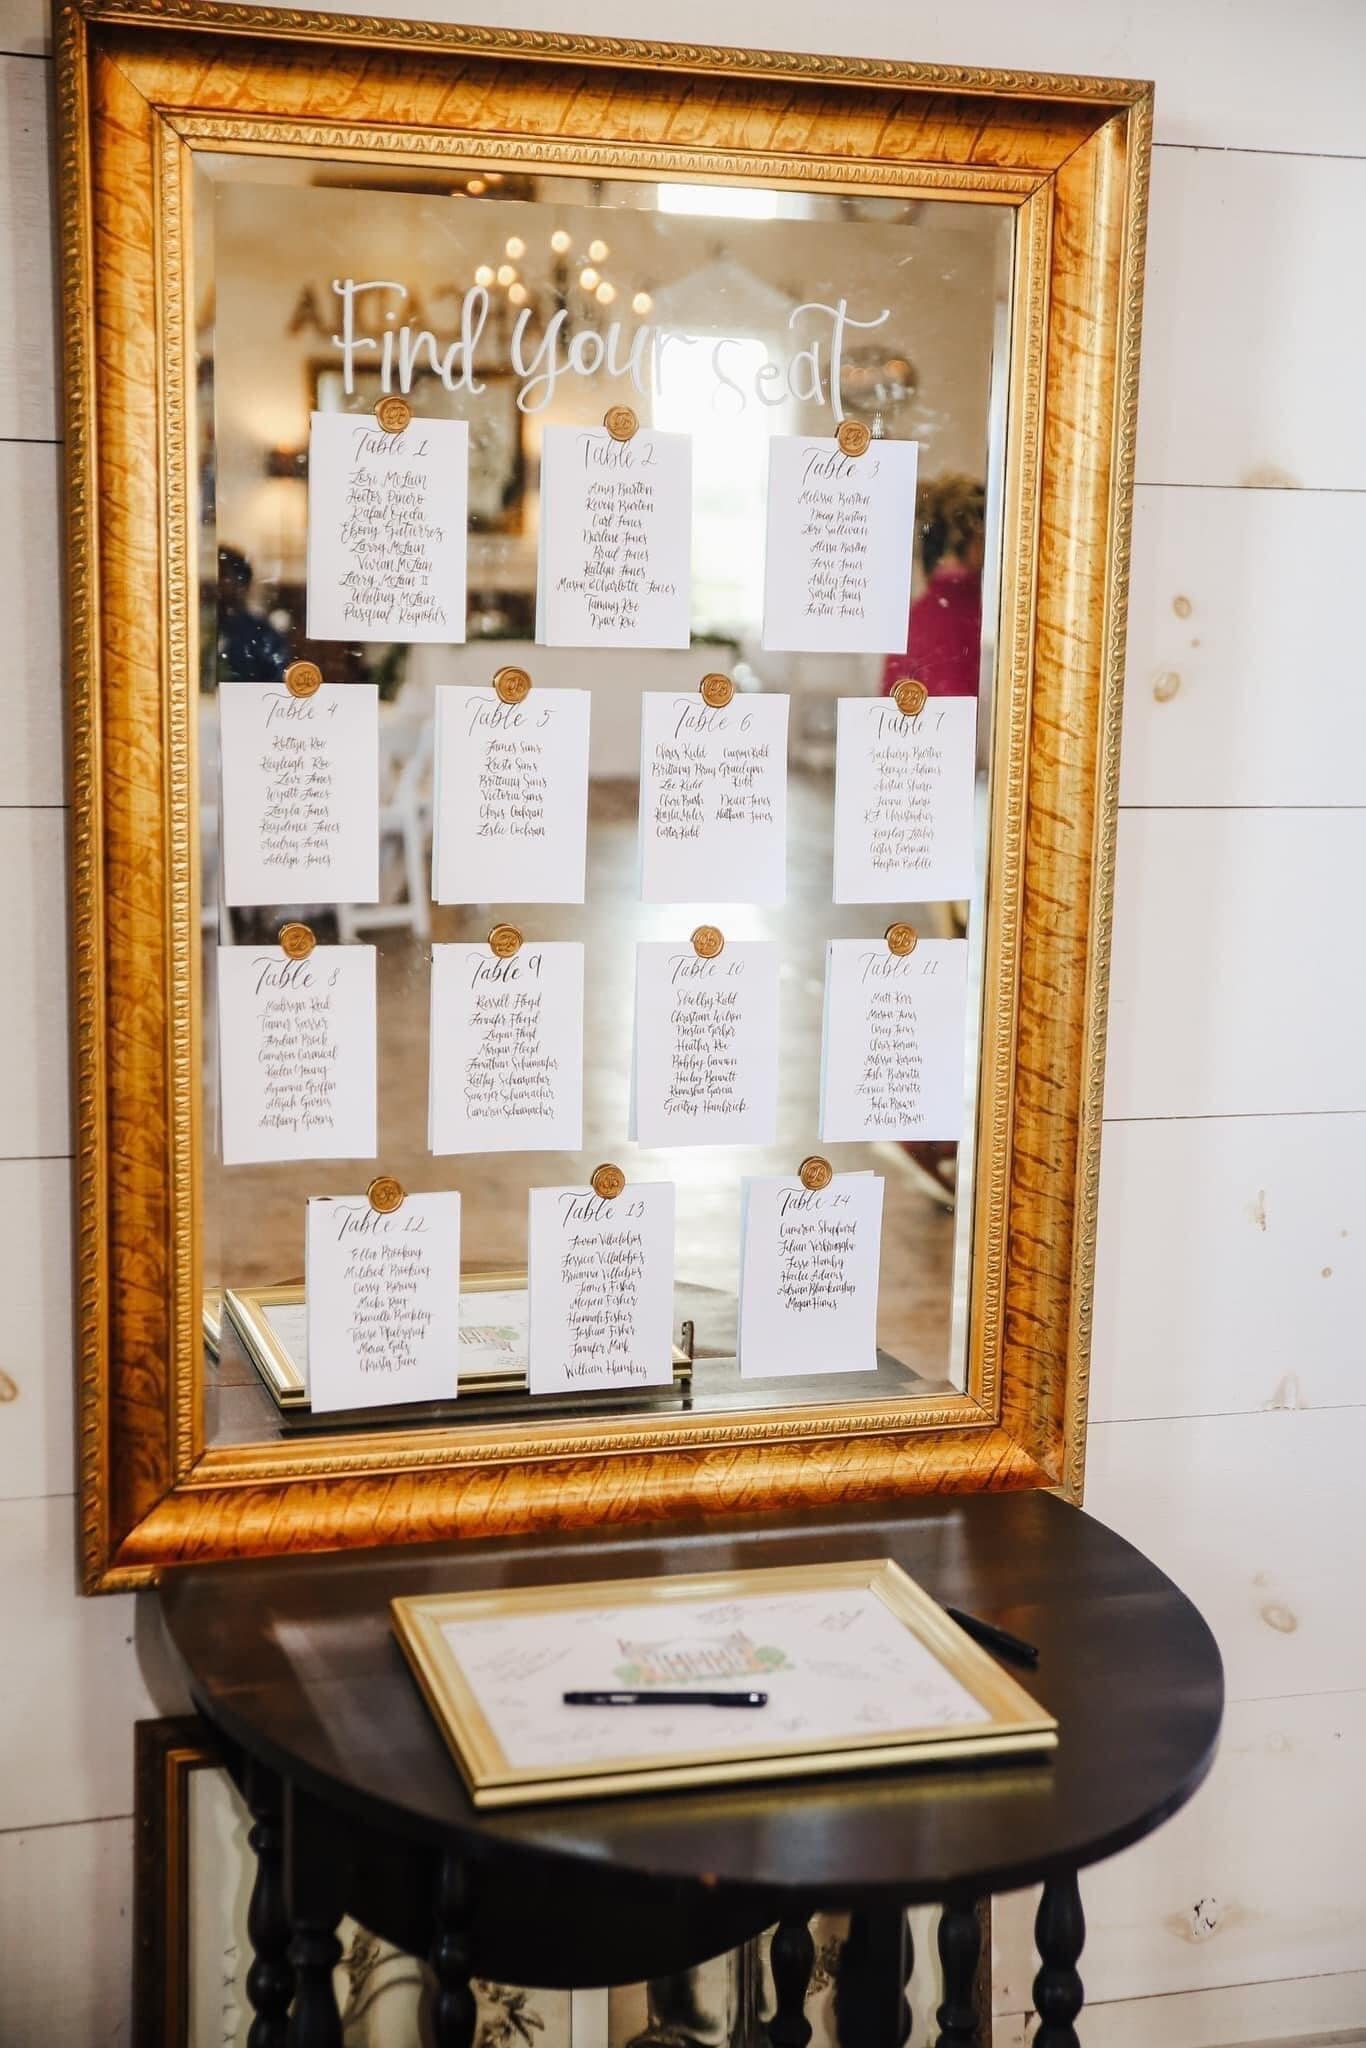 Find your seat
Table 1
Lori McLain
Hector Dinero
Rafael Ojeda
Ebony Gutierrez
Larry McLain
Vivian McLain
Larry McLain II
Whitney McLain
Pasqual Reynolds
Table 2
Amy Burton
Kevin Burton
Carl Jones
Darlene Jones
Brad Jones
Kaitlyn Jones
Mason & Charlotte Jones
Tammy Roe
Dave Roe
Table 3
Melissa Burton
Doug Burton
Lori Sullivan
Alissa Burton
Jesse Jones
Ashley Jones
Sarah Jones
Justin Jones
Table 4
Roe
Kayleigh Roe
Levi Jones
Wyatt Jones
Layla Jones
Kaydence Jones
Audrey Jones
Adelyn Jones
Table 5
James Sims
Krista Sims
Brittany Sims
Victoria Sims
Chris Cochran
Leslie Cochran
Table 6
Chris Kidd Camron Kidd
Brittany Bray Gracelynn
Lee Kidd Kidd
Cheri Bush Dean Jones
Kayla Moles Nathan Jones
Carter Kidd
Table 7
Zachary Burton
Kenzie Adams
Austin Sharp
Sharp
KJ Christopher
Kaeylen
Curtis
Hayden Biddle
Table 8
Madisyn Reed
Tanner Sasser
Jordan Brock
Cameron Carnical
Kaden Young
Ayanna Griffin
Aliyah Givens
Anthony Givens
Table 9
Russell Floyd
Jennifer Floyd
Logan Floyd
Morgan Floyd
Jonathan Schumacher
Kathy Schumacher
Sawyer Schumacher
Cameron Schumacher
Table 10
Shelby Kidd
Christian Wilson
Dustin Gerber
Heather Roe
Bobby Cannon
Hailey Bennett
Garcia
Gentry Hambrick
Table 11
Matt Kerr
Mason Jones
Corey Jones
Chris Karam
Melissa Karam
Josh Burnette
Jessica Burnette
John Brown
Ashley Brown
Table 12
Ellie Brooking
Mildred Brooking
Cassy Boring
Micki Ray
Danielle Buckley
Terese
Maria Getz
Christy Jane
Table 13
Javon Villalobos
Jessica Villalobos
Brianna Villalobos
James Fisher
Megan Fisher
Hannah Fisher
Joshua Fisher
Jennifer Mink
William Hamby
Table 14
Cameron Shepherd
Julian
Jesse Hamby
Hailee Adams
Adrian Blankenship
Megan Himes